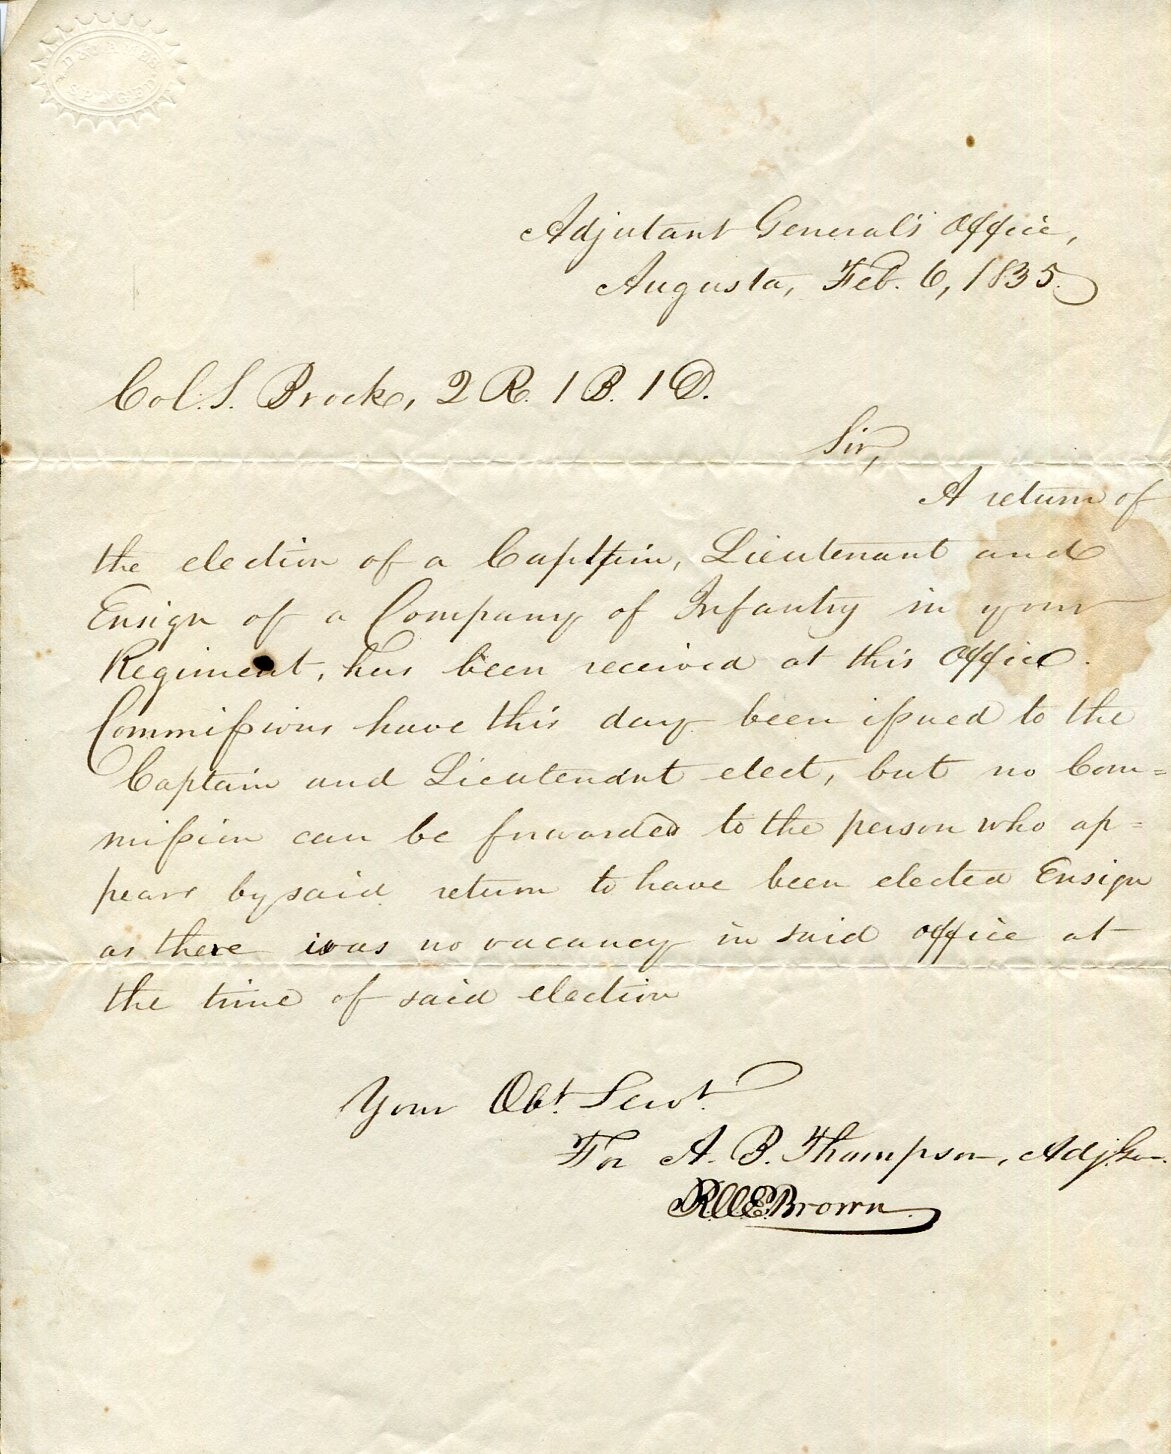 Adjutant General's Office,
Augusta, Feb. 6, 1835.
Col. S. Brock, 2 R. 1 B. 1 D.
Sir,
A return of
the election of a Captain, Lieutenant and
Ensign of a Company of Infantry in your
Regiment, has been received at this Office.
Commiſsions have this day been iſsued to the
Captain and Lieutenant elect, but no Com=
miſsion can be forwarded to the person who ap=
pears by said return to have been elected Ensign
as there was no vacancy in said office at
the time of said election
Your Obt. Servt.
For A. B. Thompson, Adj. Gen.
Brown